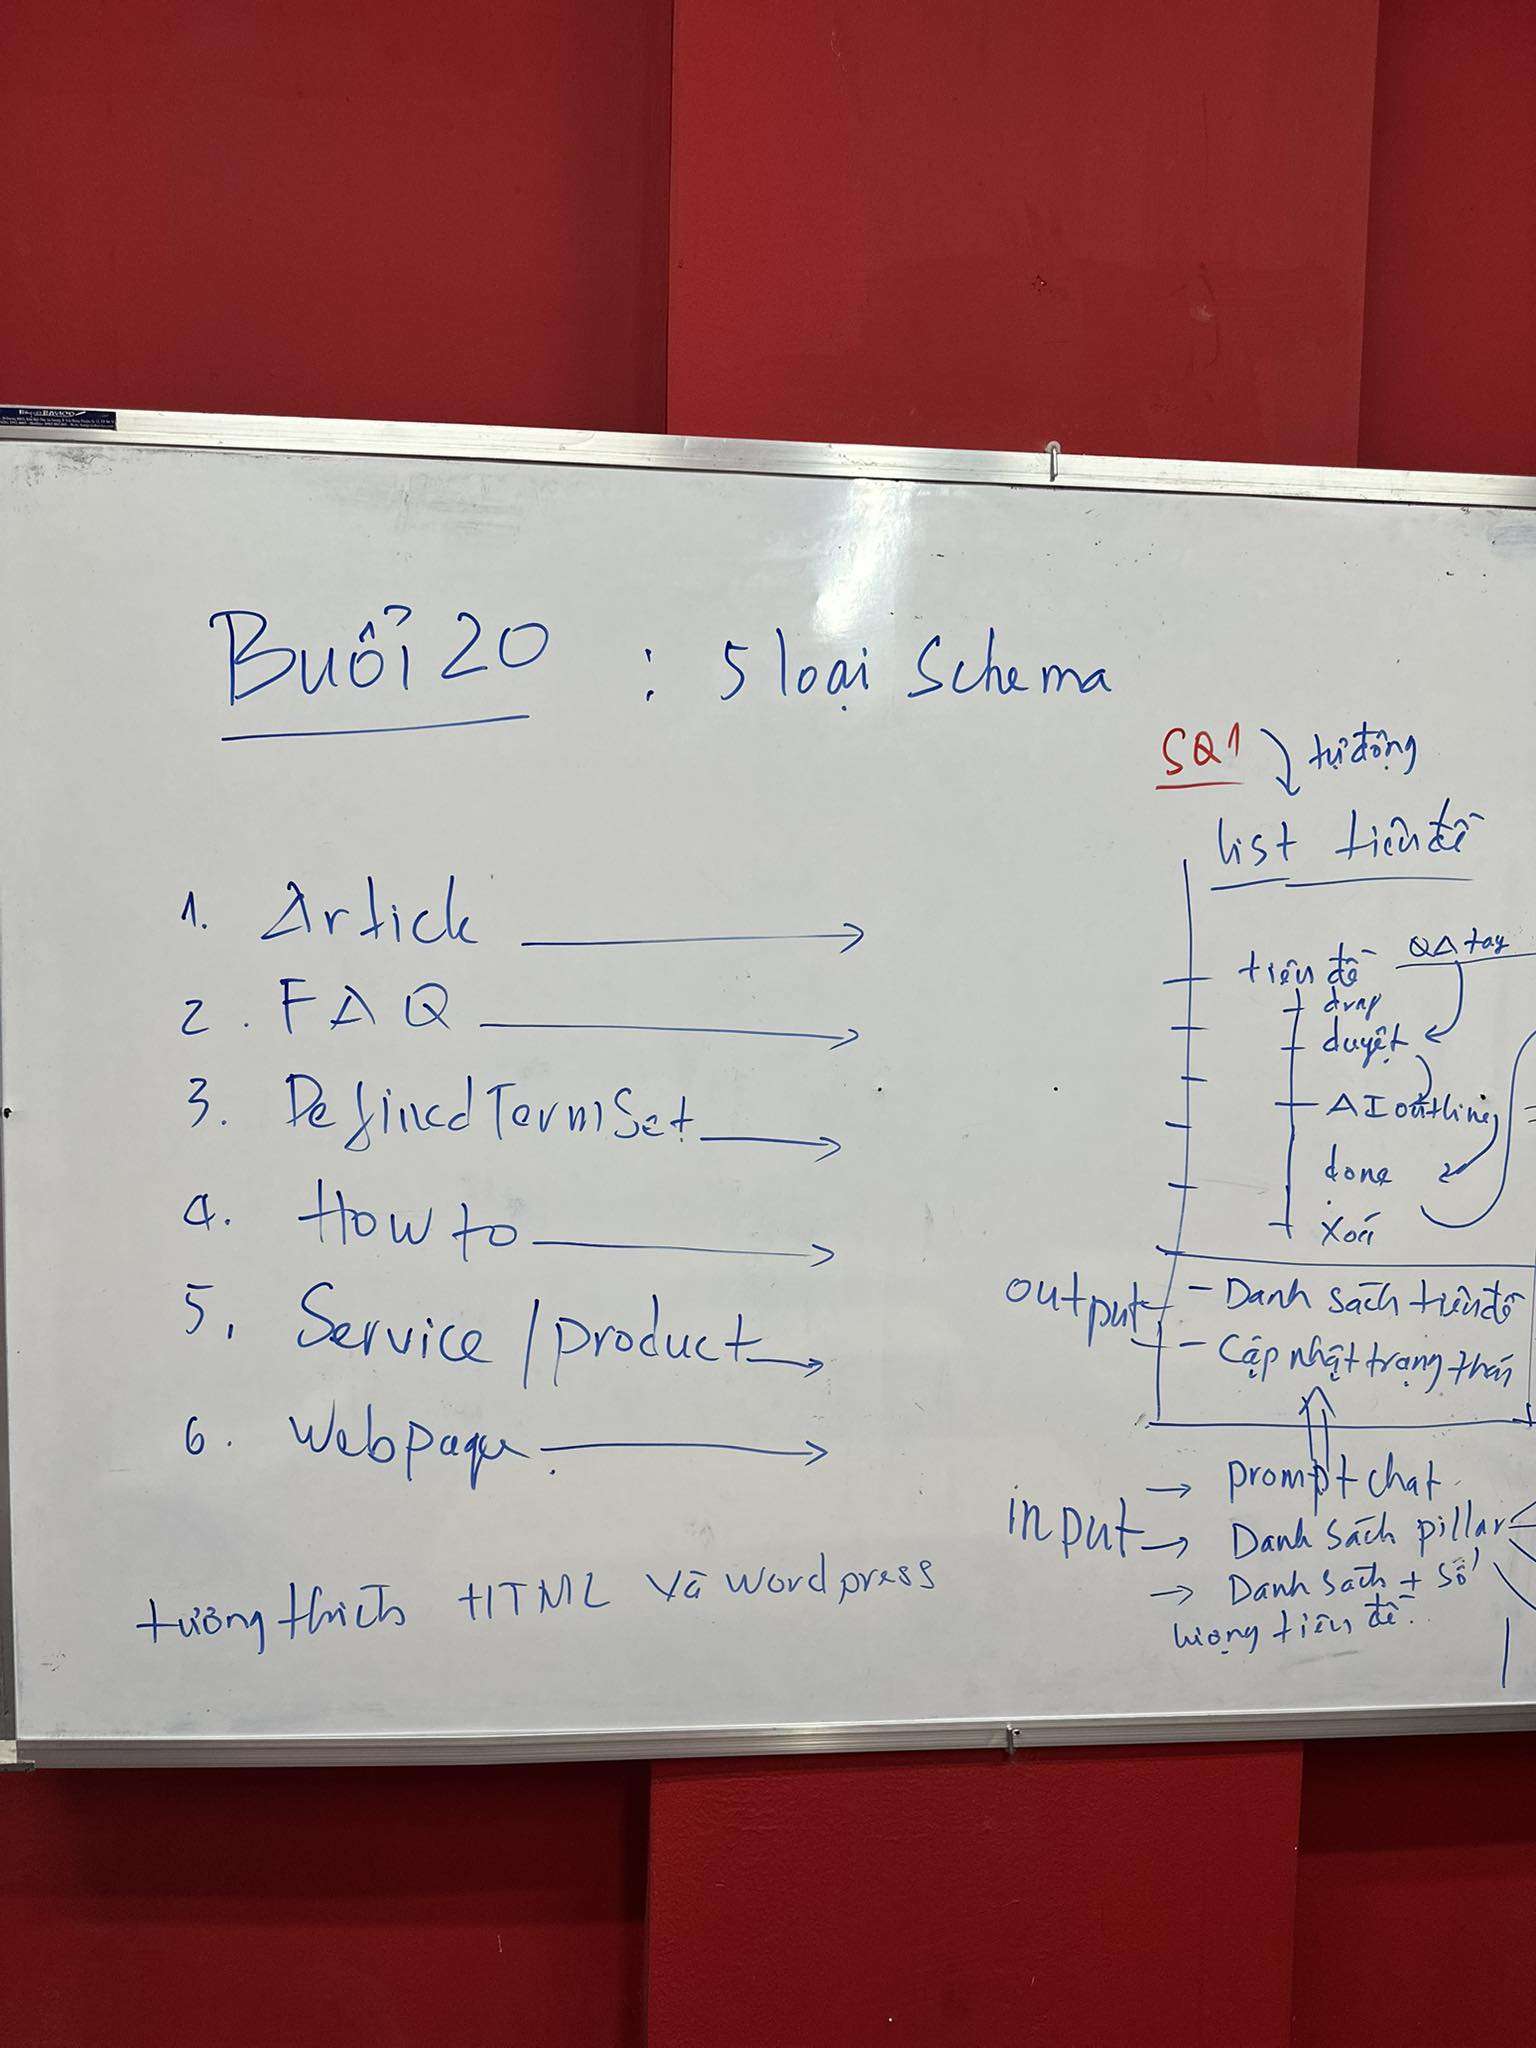 Buổi 20 : 5 loại Schema
1. Article
2. FAQ
3. DefinedTermSet
4. How to
5. Service / product
6. Webpage
tương thích HTML và Wordpress
SQ1 tự động
list tiêu đề
tiêu đề QA tay
duyệt
AI outline
done
xoá
output
- Danh sách tiêu đề
- Cập nhật trạng thái
input
→ prompt chat
→ Danh sách pillar
→ Danh sách + số
lượng tiêu đề.